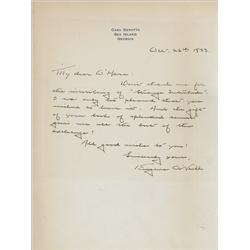 CASA GENOTTA
SEA ISLAND
GEORGIA
Dec. 26th 1933.
My dear O'Hara:
Don't thank me for
the inscribing of "Strange Interlude".
I was only too pleased that you
wished to have it. And the gift
of your book of splendid
gives me all the best of the
exchange!
All good wishes to you!
Sincerely yours,
Eugene O'Neill